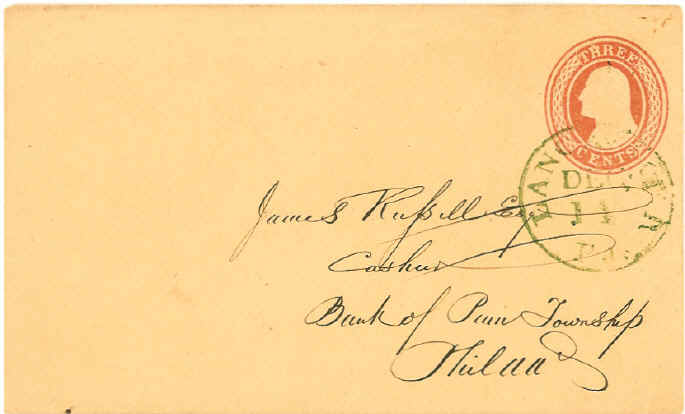 THREE
CENTS
LANCASTER
DEC
11
Pa.
James Russell Esq
Cashier
Bank of Penn Township
Philada